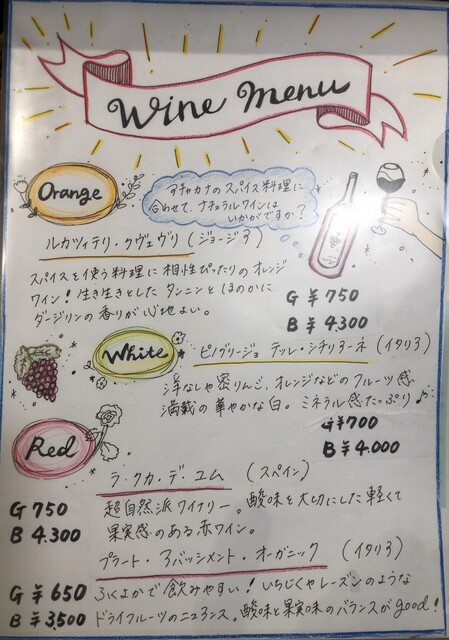 Wine menu
Orange
アチャカナのスパイス料理に
合わせて、ナチュラルワインは
いかがですか？
ルカツィテリ・クヴェヴリ (ジョージア)
スパイスを使う料理に相性ぴったりのオレンジ
ワイン！生き生きとしたタンニンとほのかに
ダージリンの香りが心地よい。
G ¥750
B ¥4300
White
ピノグリージョ テッレ・シチリアーネ (イタリア)
洋なしや蜜りんご、オレンジなどのフルーツ感
満載の華やかな白。ミネラル感たっぷり♪
G ¥700
B ¥4.000
Red
ラ・クカ・デ・ユム (スペイン)
G 750
B 4.300
超自然派ワイナリー。酸味を大切にした軽くて
果実感のある赤ワイン。
プラート・アパッシメント・オーガニック (イタリア)
G ¥650
B ¥3,500
ふくよかで飲みやすい！いちじくやレーズンのような
ドライフルーツのニュアンス。酸味と果実味のバランスがgood!